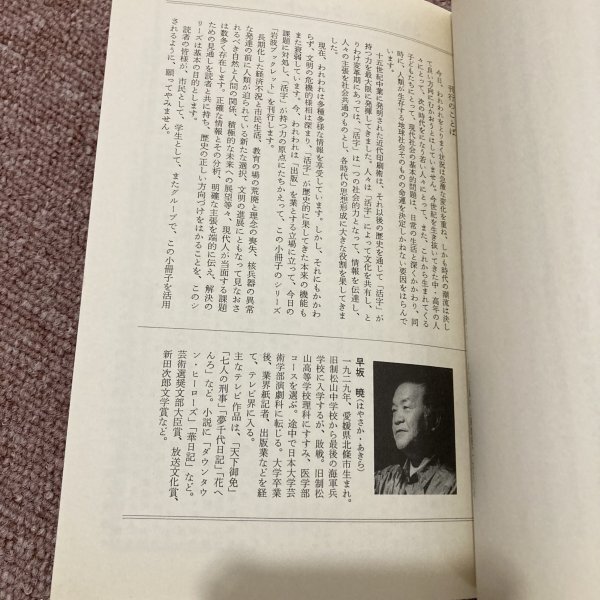 刊行のことば
今日、われわれをとりまく状況は急激な変化を重ね、しかも時代の潮流は決し
て良い方向にむかおうとはしていません。今世紀を生き抜いてきた中・高年の人
々にとって、次の時代をになう若い人々にとって、また、これから生まれてくる
子どもたちにとって、現代社会の基本的問題は、日常の生活と深くかかわり、同
時に、人類が生存する地球社会そのものの命運を決定しかねない要因をはらんで
います。
十五世紀中葉に発明された近代印刷術は、それ以後の歴史を通じて「活字」が
持つ力を最大限に発揮してきました。人々は「活字」によって文化を共有し、と
りわけ変革期にあっては、「活字」は一つの社会的力となって、情報を伝達し、
人々の主張を社会共通のものとし、各時代の思想形成に大きな役割を果してきま
した。
現在、われわれは多種多様な情報を享受しています。しかし、それにもかかわ
らず、文明の危機的様相は深まり、「活字」が歴史的に果してきた本来の機能も
また衰弱しています。今、われわれは「出版」を業とする立場に立って、今日の
課題に対処し、「活字」が持つ力の原点にたちかえって、この小冊子のシリーズ
「岩波ブックレット」を刊行します。
長期化した経済不況と市民生活、教育の場の荒廃と理念の喪失、核兵器の異常
な発達の前に人類が迫られている新たな選択、文明の進展にともなって見なおさ
れるべき自然と人間の関係、積極的な未来への展望等々、現代人が当面する課題
は数多く存在します。正確な情報とその分析、明確な主張を端的に伝え、解決の
ための見通しを読者と共に持ち、歴史の正しい方向づけをはかることを、このシ
リーズは基本の目的とします。
読者の皆様が、市民として、学生として、またグループで、この小冊子を活用
されるように、願ってやみません。
早坂 暁(はやさか・あきら)
一九二九年、愛媛県北條市生まれ。
旧制松山中学校から最後の海軍兵
学校に入学するが、敗戦。旧制松
山高等学校理科にすすみ、医学部
コースを選ぶ。途中で日本大学芸
術学部演劇科に転じる。大学卒業
後、業界紙記者、出版業などを経
て、テレビ界に入る。
主なテレビ作品は、「天下御免」
「七人の刑事」「夢千代日記」「花へ
んろ」など。小説に「ダウンタウ
ン・ヒーローズ」「華日記」など。
芸術選奨文部大臣賞、放送文化賞、
新田次郎文学賞など。